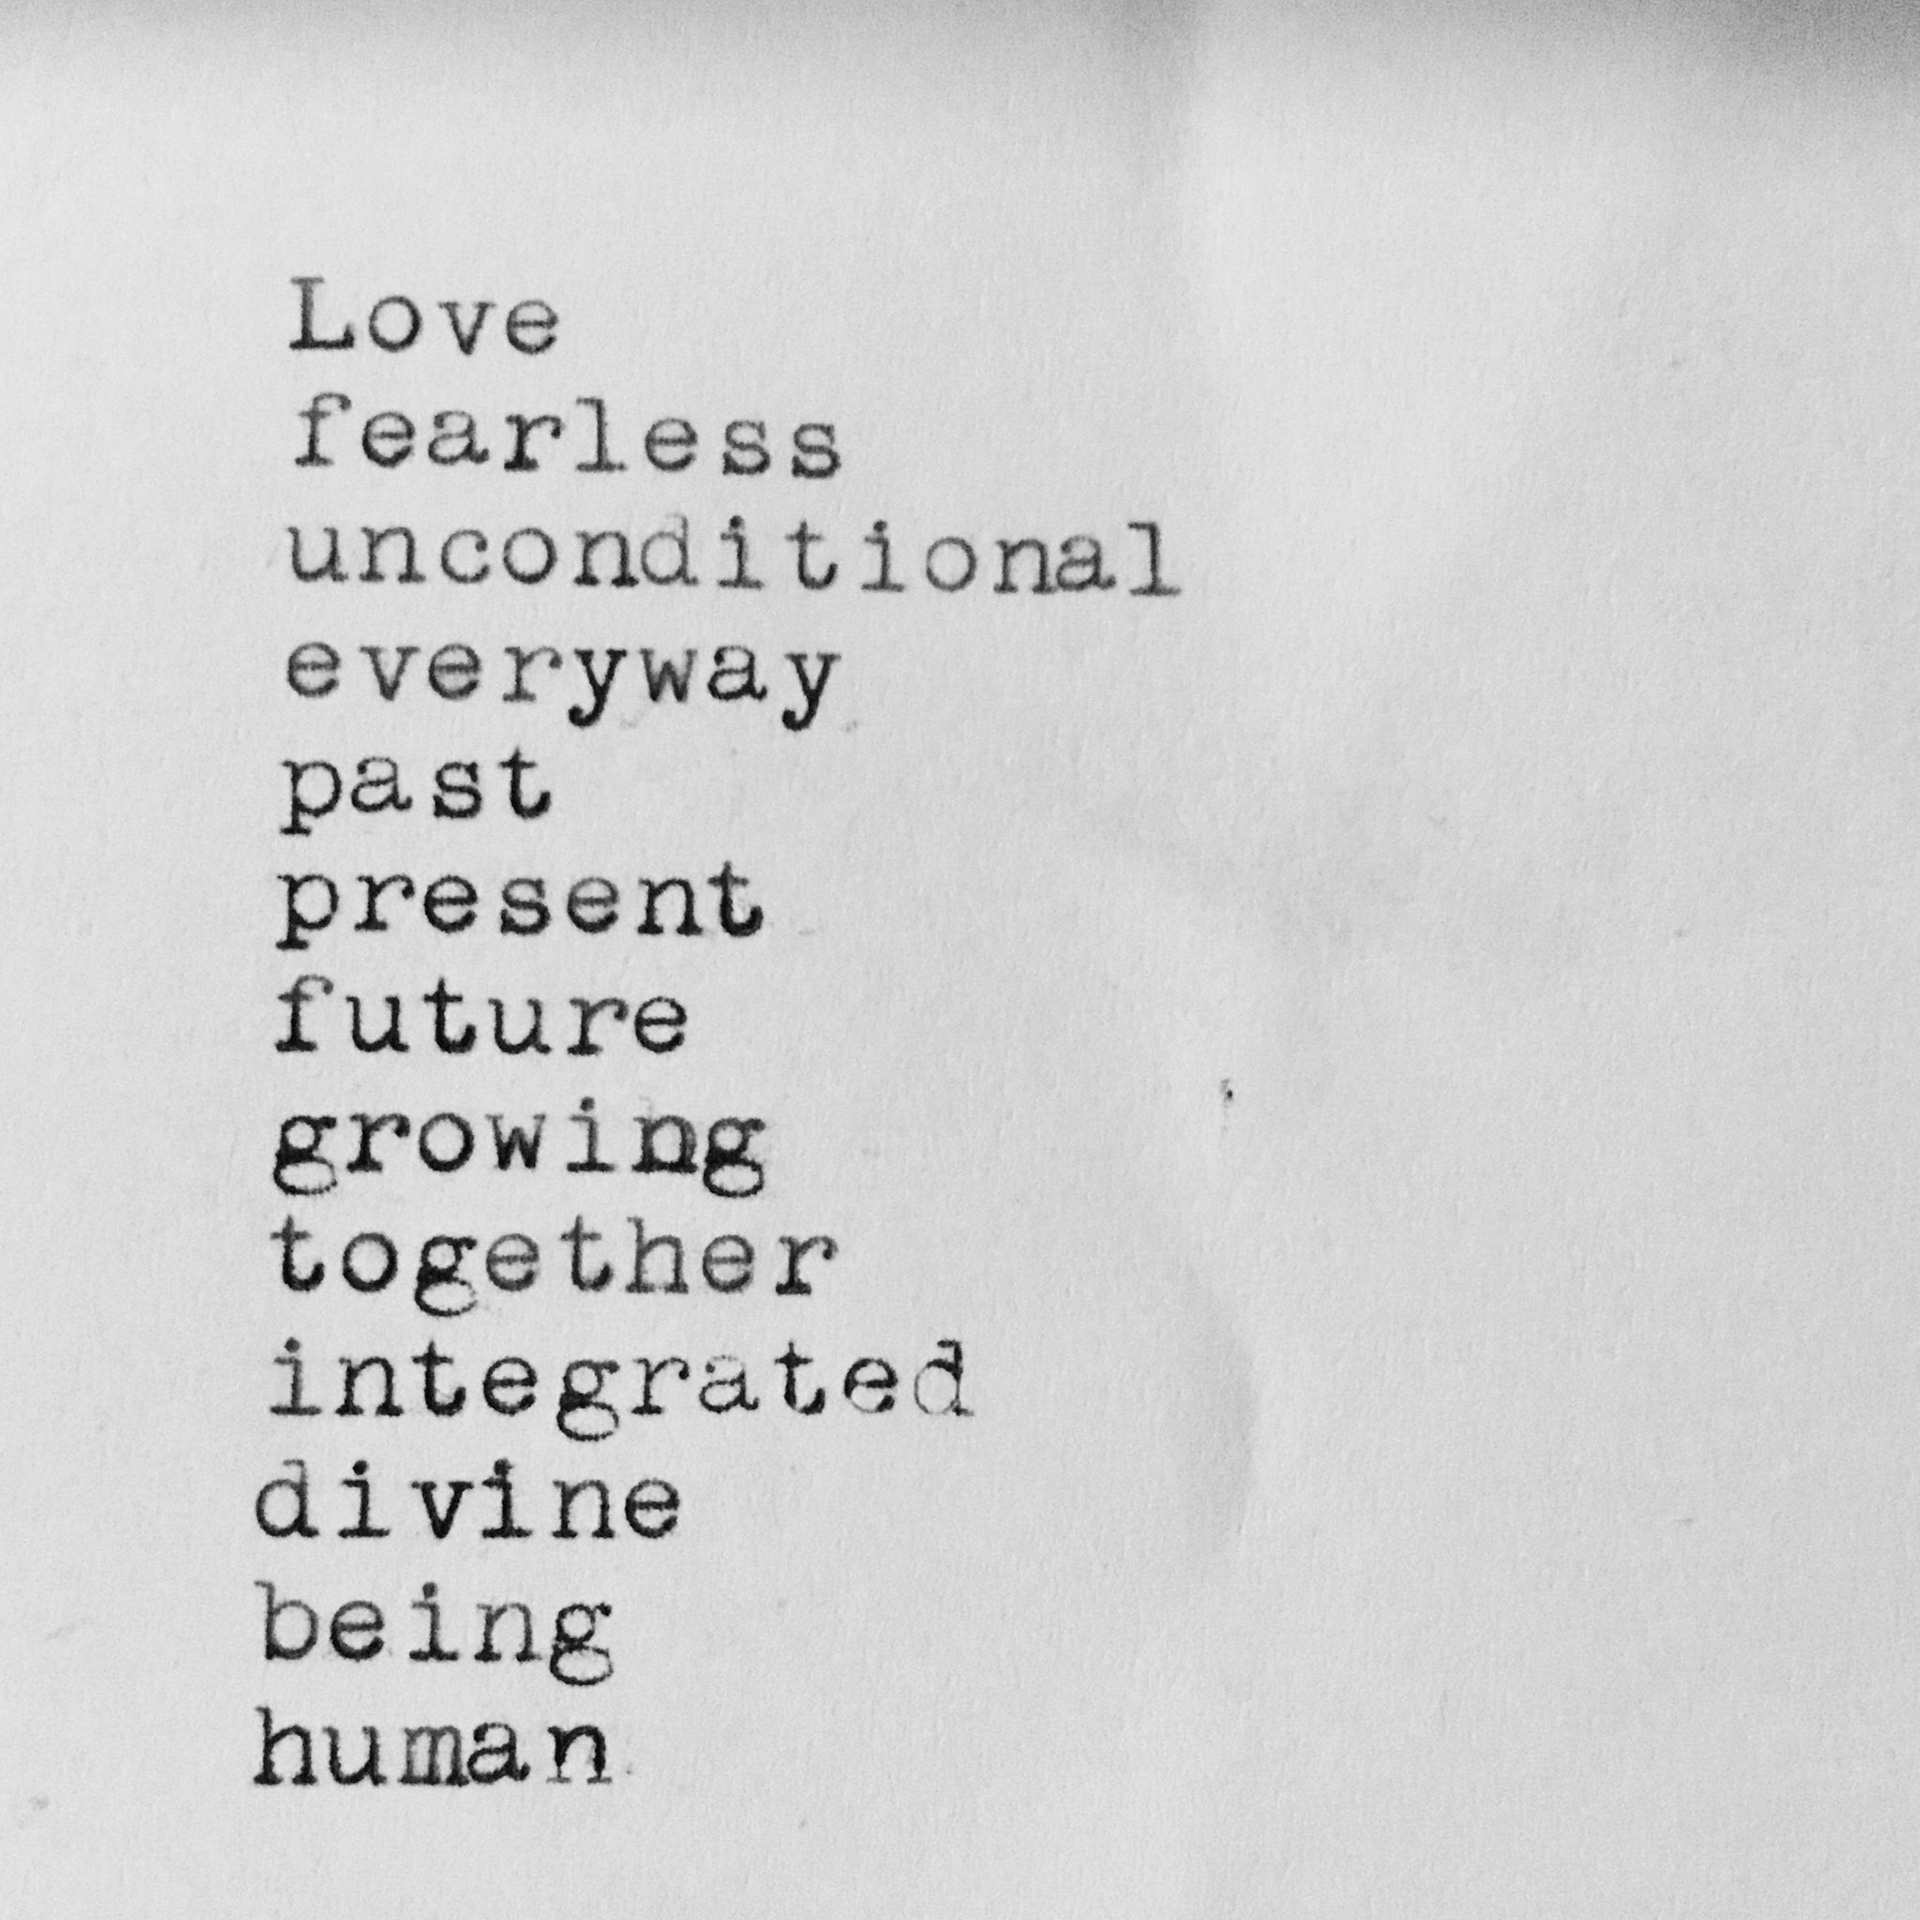 Love
fearless
unconditional
everyway
past
present
future
growing
together
integrated
divine
being
human